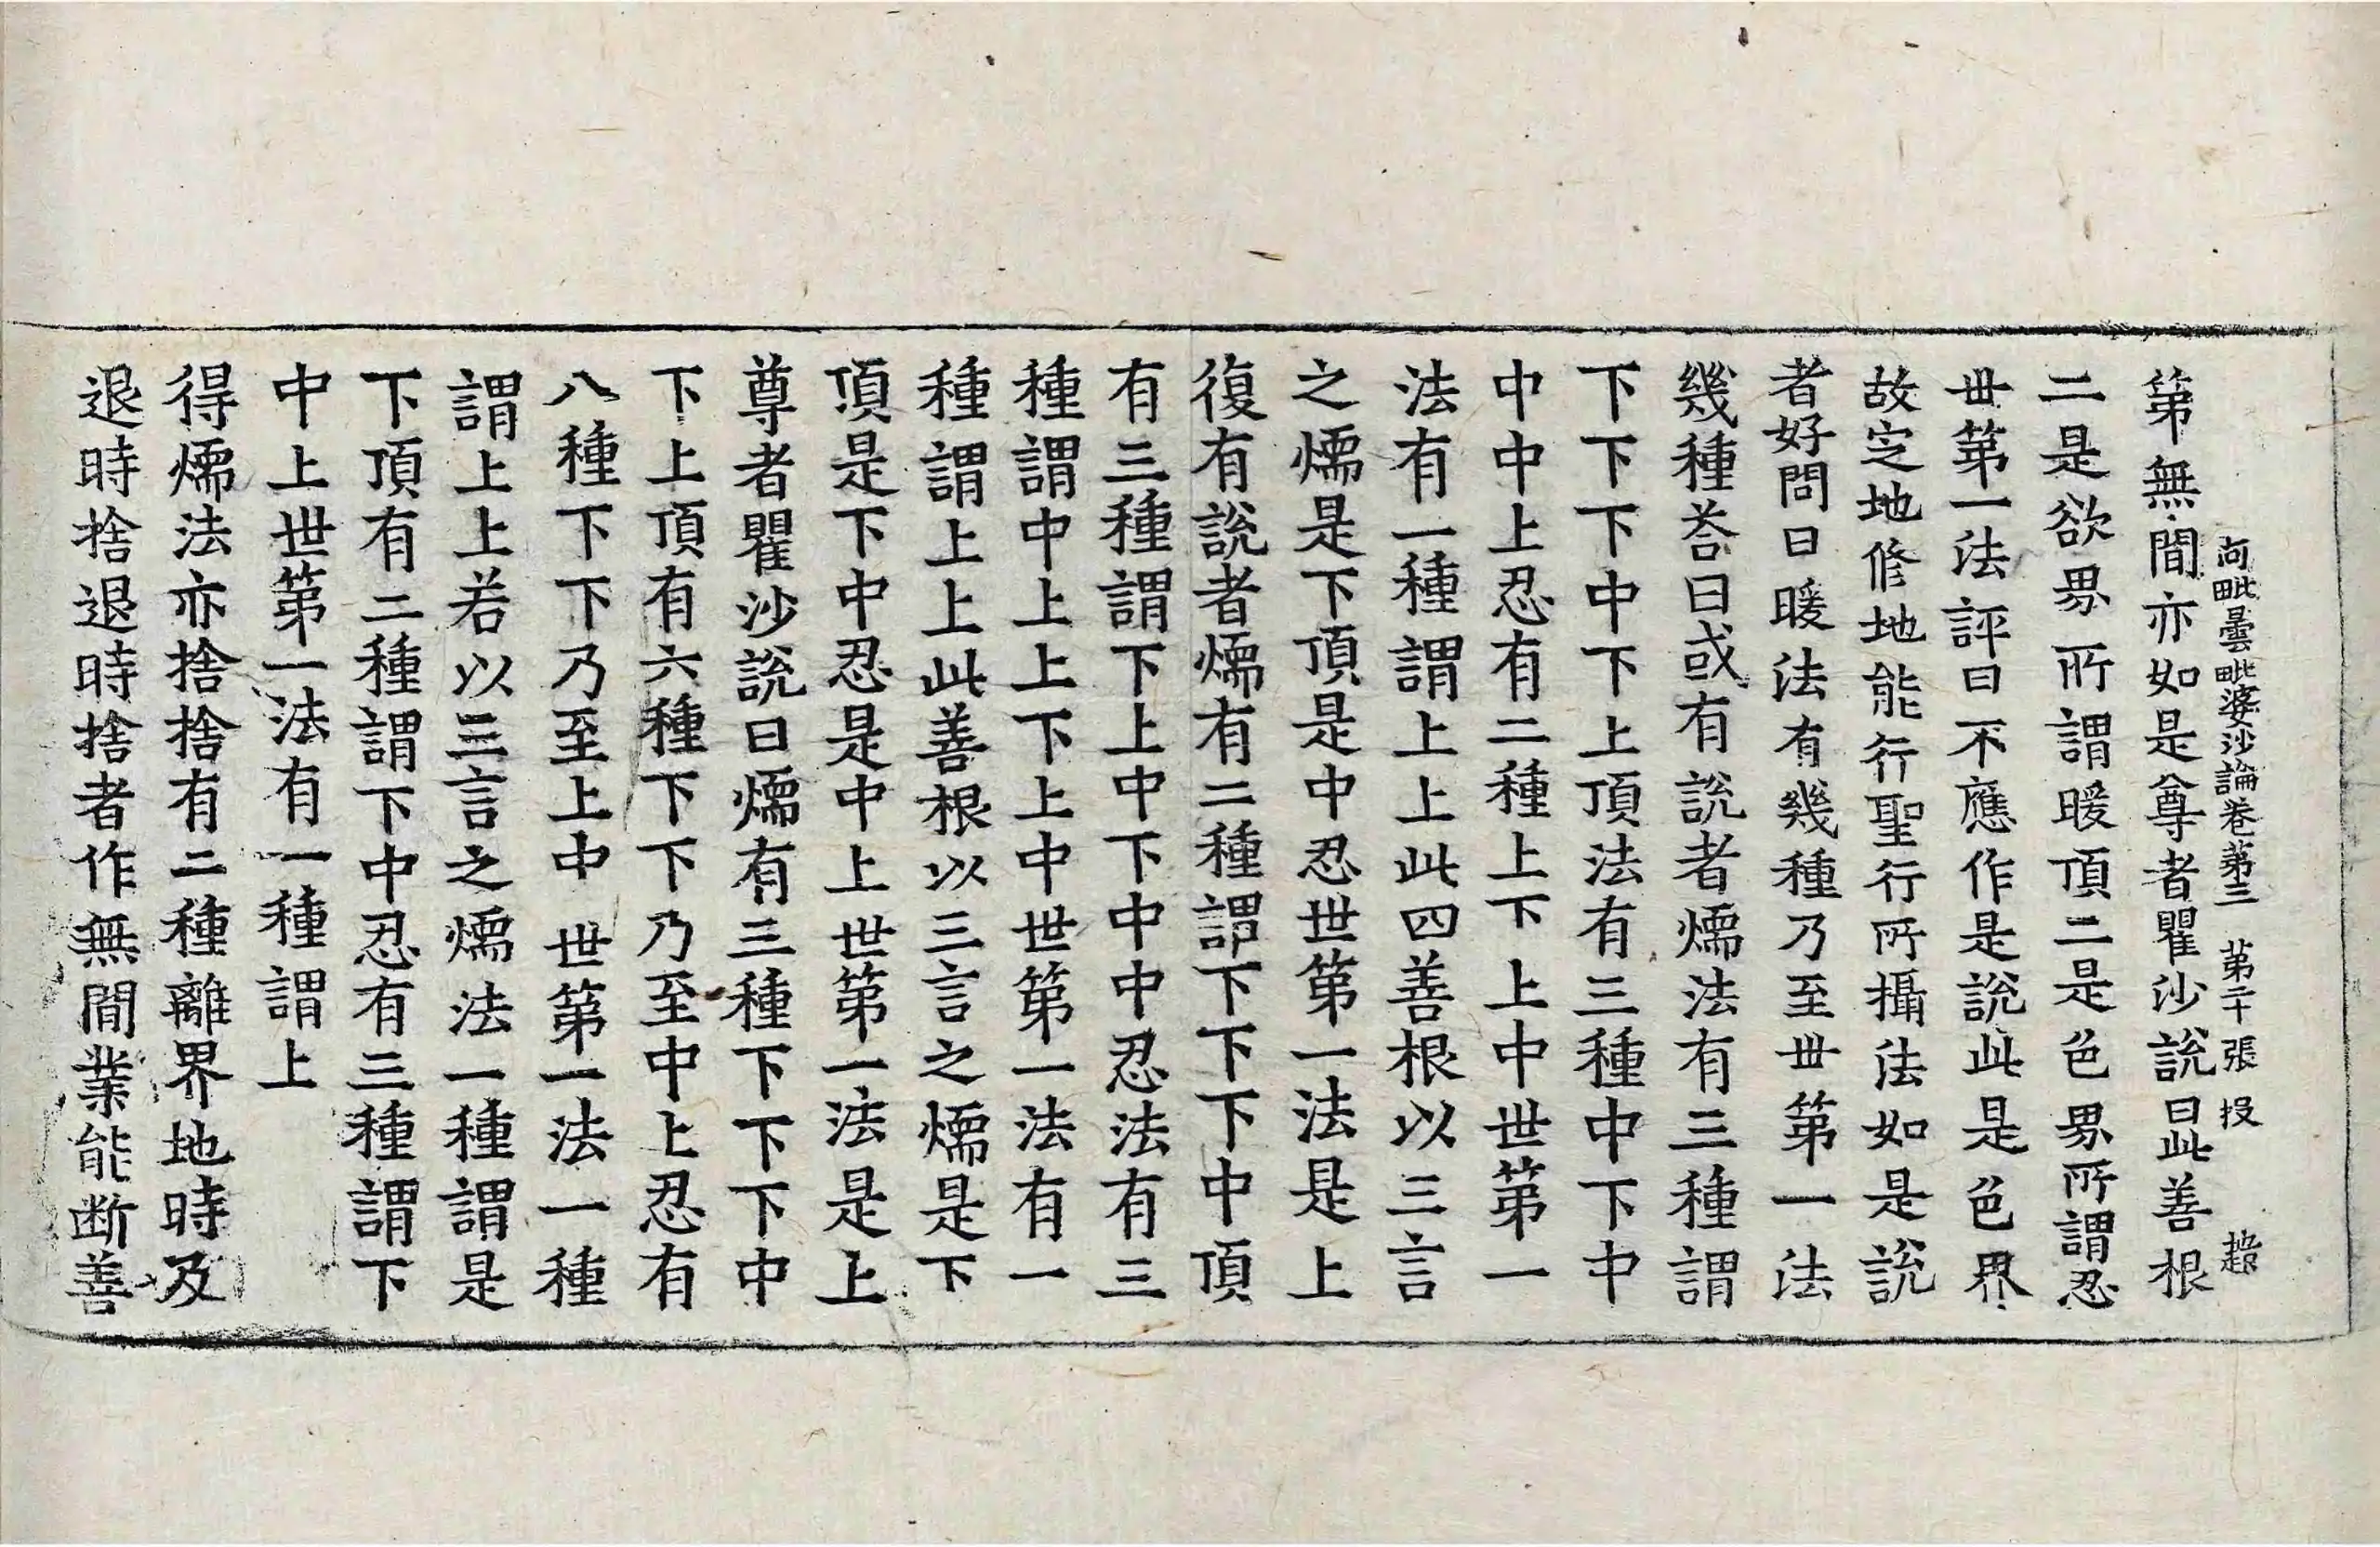 第無間亦如是尊者瞿沙說曰此善根
阿毗曇毗婆沙論卷第三 第二十張 投
二是欲界所謂暖頂二是色界所謂忍
世第一法評曰不應作是說此是色界
故定地修地能行聖行所攝法如是說
者好問曰暖法有幾種乃至世第一法
幾種荅曰或有說者煗法有三種謂
下下下中下上頂法有三種中下中
中中上忍有二種上下上中世第一
法有一種謂上上此四善根以三言
之煗是下頂是中忍世第一法是上
復有說者煗有二種謂下下下中頂
有三種謂下上中下中中忍法有三
種謂中上上下上中世第一法有一
種謂上上此善根以三言之煗是下
頂是下中忍是中上世第一法是上
尊者瞿沙說曰煗有三種下下下中
下上頂有六種下下乃至中上忍有
八種下下乃至上中 世第一法一種
謂上上若以三言之煗法一種謂是
下頂有二種謂下中忍有三種謂下
中上世第一法有一種謂上
得煗法亦捨捨有二種離界地時及
退時捨退時捨者作無間業能断善